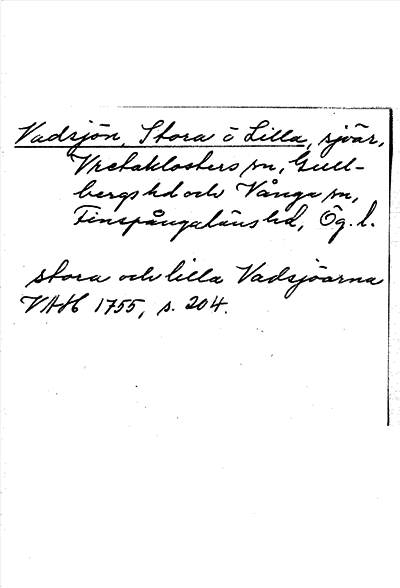 Vadsjön, Stora o Lilla, sjöar,
Vretaklosters sn, Gull-
bergs hd och Vånga sn,
Finspångaläns hd, Ög. l.
stora och lilla Vadsjöarna
VAH 1755, s. 204.